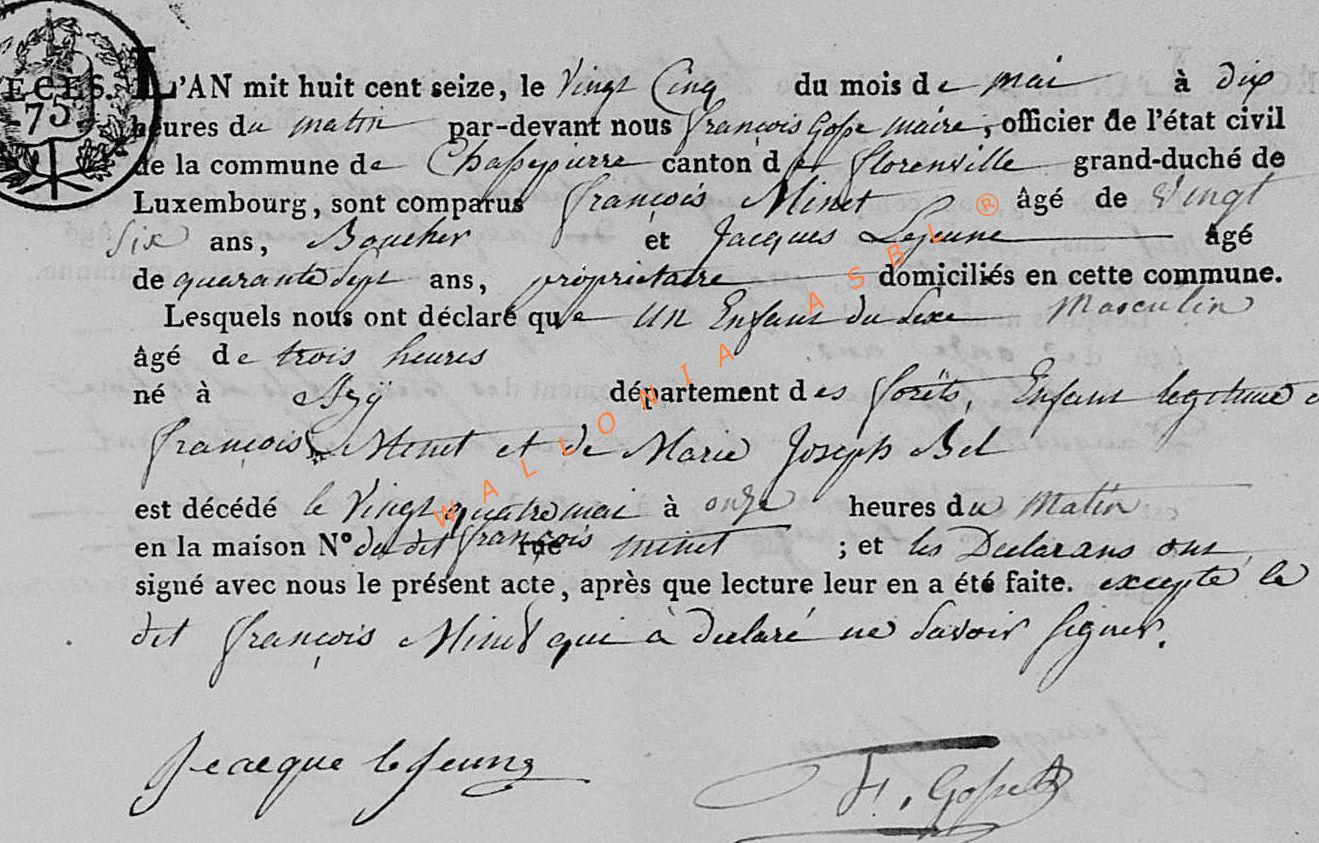 DÉCES.
75
L'AN mit huit cent seize, le Vingt Cinq du mois de mai à dix
heures du matin par-devant nous françois Gosse maire, officier de l'état civil
de la commune de Chassepierre canton de florenville grand-duché de
Luxembourg, sont comparus françois Minet âgé de Vingt
Six ans, Boucher et Jacques Lejeune âgé
de quarante Sept ans, propriétaire domiciliés en cette commune.
Lesquels nous ont déclaré que un Enfant du Sexe Masculin
âgé de trois heures
né à Azÿ département des forêts, Enfant legitime
françois Minet et de Marie Joseph Bel
est décédé le Vingt quatre mai à onze heures du Matin
en la maison N° du dit françois rue minet ; et les Declarans ont
signé avec nous le présent acte, après que lecture leur en a été faite. excepté le
dit françois Minet qui à declaré ne Savoir Signer.
Jeacque le Jeune
F. Gosse
WALLONIA ASBL ®